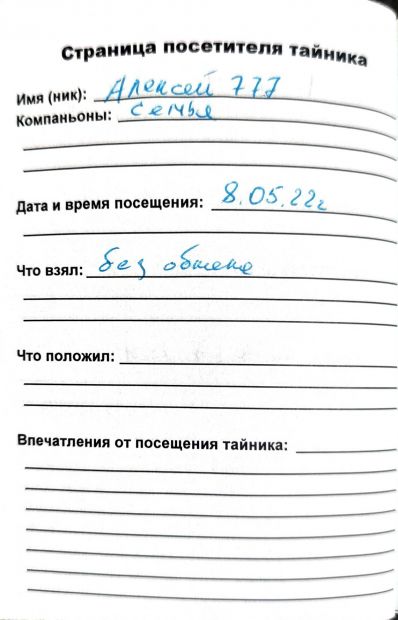 Страница посетителя тайника
Имя (ник): Алексей 777
Компаньоны: семья
Дата и время посещения: 8.05.22г
Что взял: без обмена
Что положил:
Впечатления от посещения тайника: